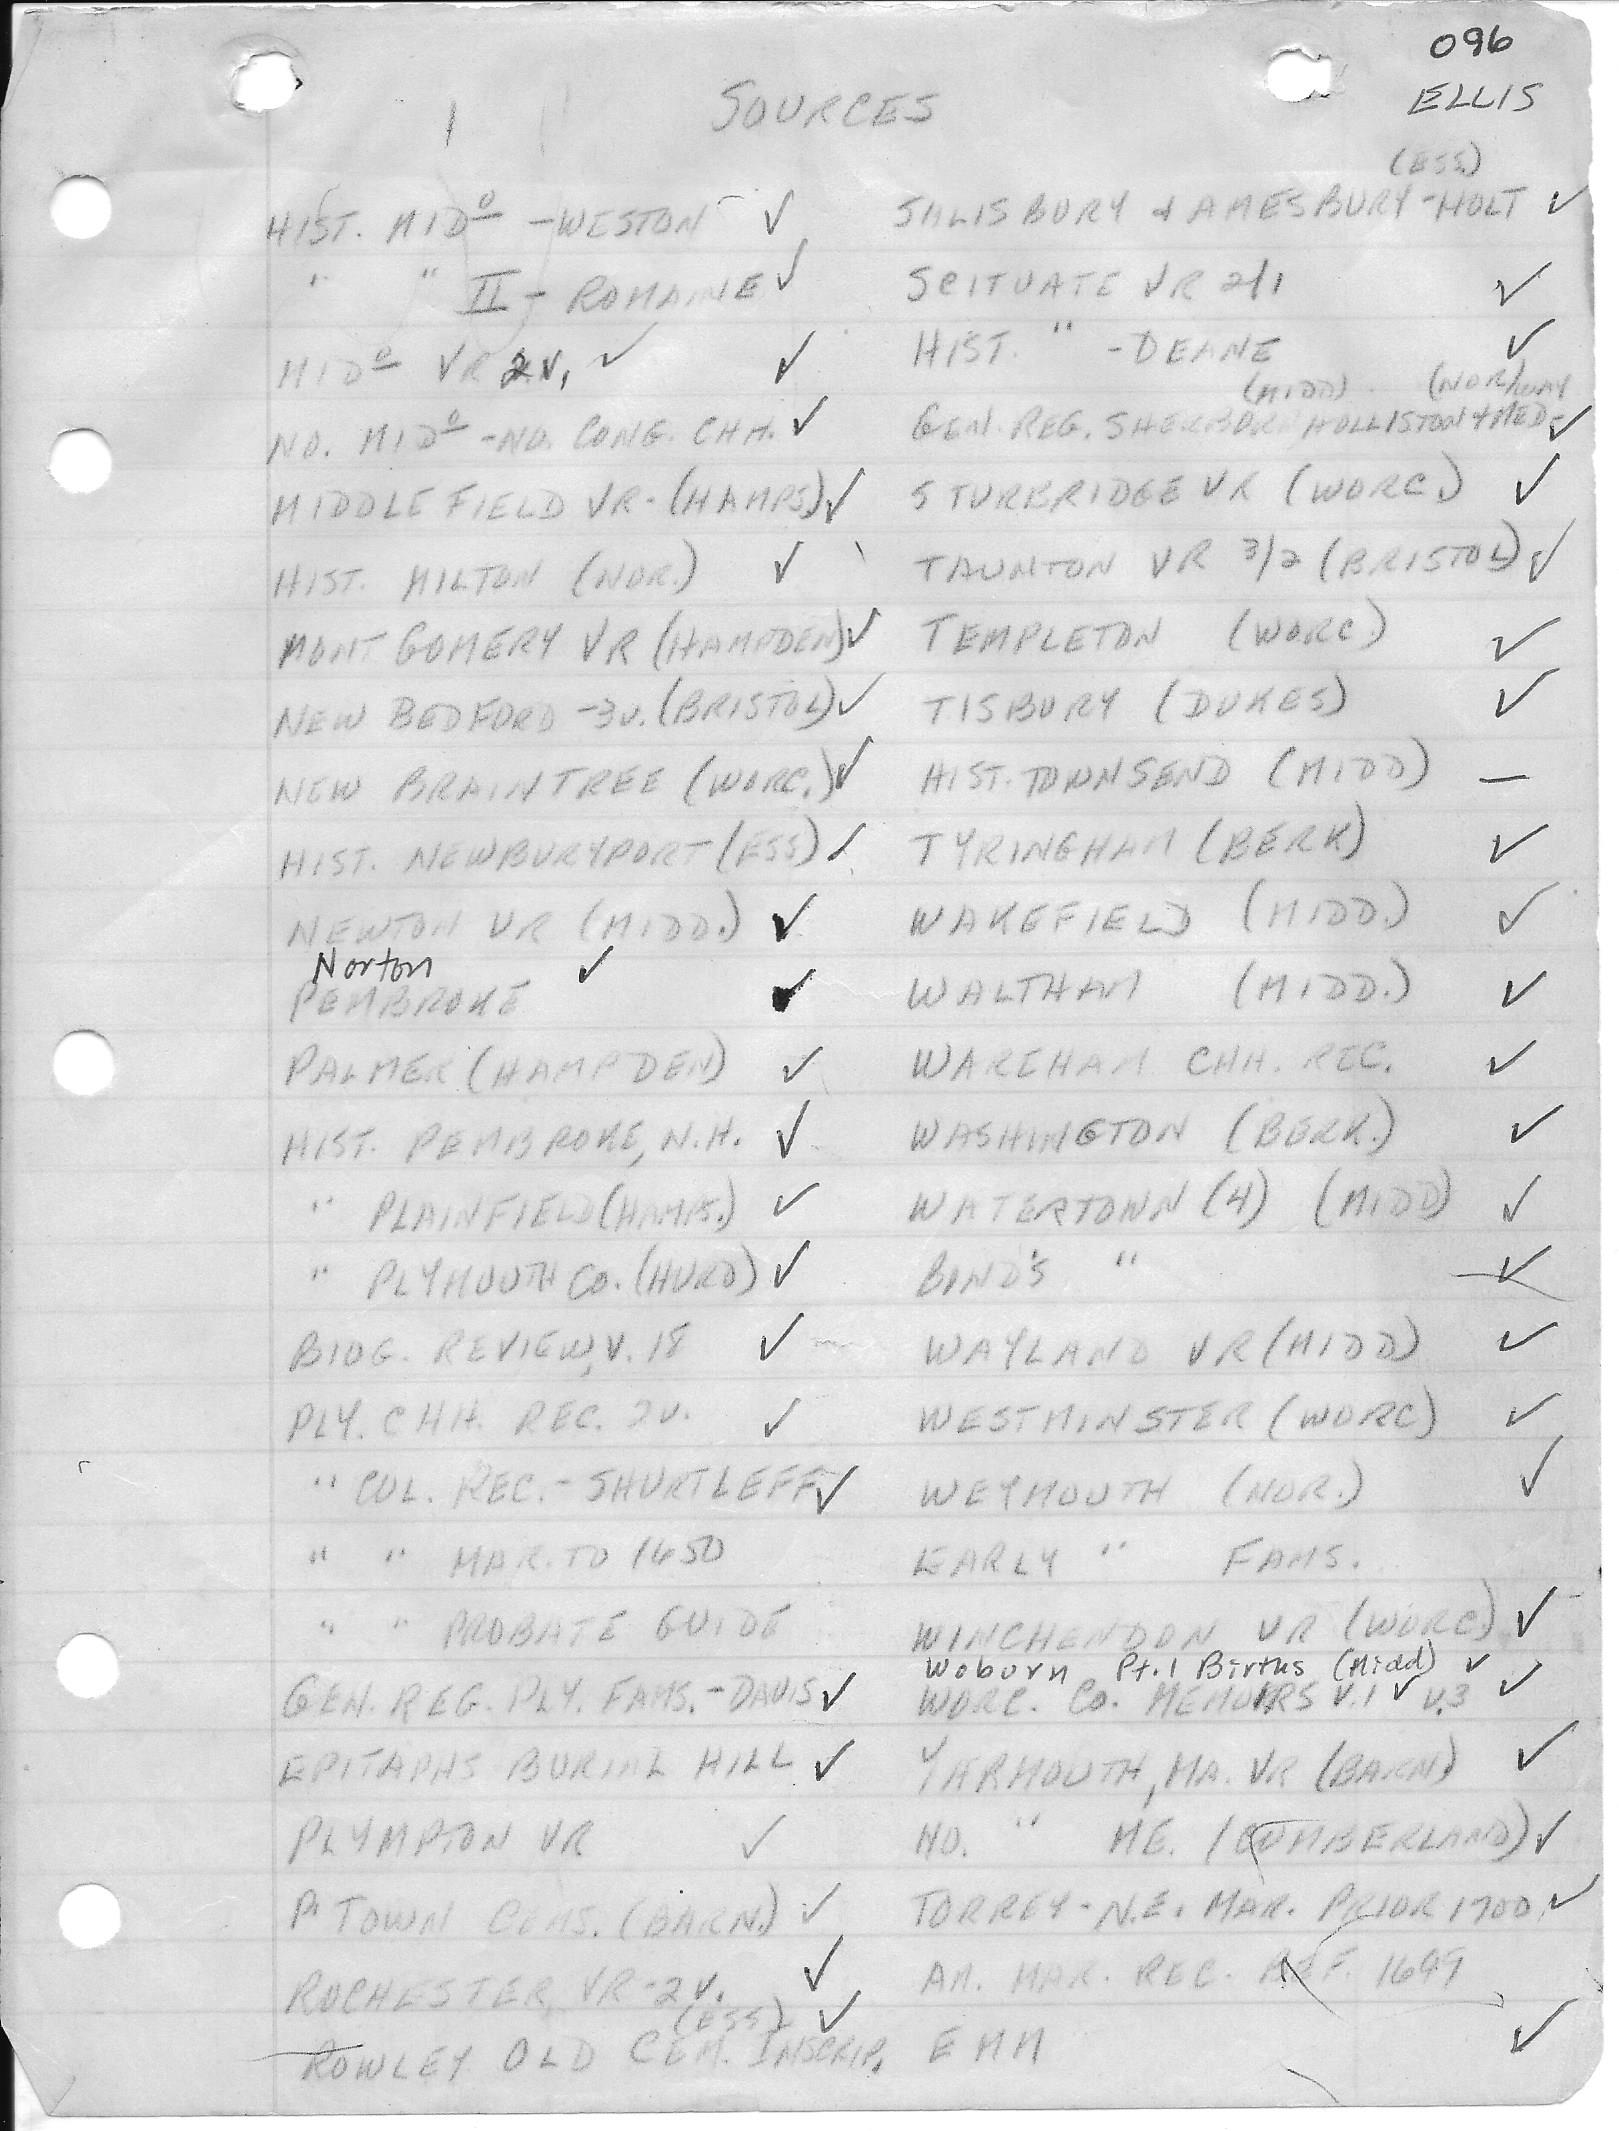 096
ELLIS
SOURCES
HIST. MIDº - WESTON ✓
" " II - ROMAINE ✓
MIDº VR 2V. ✓ ✓
NO. MIDº - NO. CONG. CHH. ✓
MIDDLEFIELD VR - (HAMPS.) ✓
HIST. MILTON (NOR.) ✓
MONTGOMERY VR (HAMPDEN) ✓
NEW BEDFORD - 3V. (BRISTOL) ✓
NEW BRAINTREE (WORC.) ✓
HIST. NEWBURYPORT (ESS) ✓
NEWTON VR (MIDD.) ✓
Norton ✓
PEMBROKE ✓
PALMER (HAMPDEN) ✓
HIST. PEMBROKE, N.H. ✓
" PLAINFIELD (HAMPS.) ✓
" PLYMOUTH CO. (HURD) ✓
BIOG. REVIEW, V. 18 ✓
PLY. CHH. REC. 2V. ✓
" COL. REC. - SHURTLEFF ✓
" " MAR. TO 1650
" " PROBATE GUIDE
GEN. REG. PLY. FAMS. - DAVIS ✓
EPITAPHS BURIAL HILL ✓
PLYMPTON VR ✓
P. TOWN CEMS. (BARN.) ✓
ROCHESTER VR - 2V. ✓
(ESS) ✓
ROWLEY OLD CEM. INSCRIP.
(ESS)
SALISBURY & AMESBURY - HOLT ✓
SCITUATE VR 2/1 ✓
HIST. " - DEANE ✓
(MIDD) (NOR) WAY
GEN. REG. SHERBORN, HOLLISTON & MED- ✓
STURBRIDGE VR (WORC.) ✓
TAUNTON VR 3/2 (BRISTOL) ✓
TEMPLETON (WORC) ✓
TISBURY (DUKES) ✓
HIST. TOWNSEND (MIDD) —
TYRINGHAM (BERK) ✓
WAKEFIELD (MIDD.) ✓
WALTHAM (MIDD.) ✓
WAREHAM CHH. REC. ✓
WASHINGTON (BERK.) ✓
WATERTOWN (4) (MIDD) ✓
BOND'S " ✓
WAYLAND VR (MIDD) ✓
WESTMINSTER (WORC) ✓
WEYMOUTH (NOR.) ✓
EARLY " FAMS.
WINCHENDON VR (WORC) ✓
Woburn Pt. 1 Births (Midd) ✓
WORC. CO. MEMOIRS V.1 ✓ V.3 ✓
YARMOUTH, MA. VR (BARN) ✓
NO. " ME. (CUMBERLAND) ✓
TORREY - N.E. MAR. PRIOR 1700 ✓
AM. MAR. REC. BEF. 1699
EMM ✓